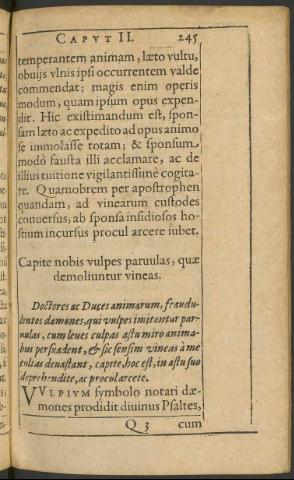 CAPVT II. 245
temperantem animam, læto vultu,
obuijs vlnis ipsi occurrentem valde
commendat; magis enim operis
modum, quam ipsum opus expen-
dit. Hic existimandum est, spon-
sam læto ac expedito ad opus animo
se immolasse totam; & sponsum
modò fausta illi acclamare, ac de
illius tuitione vigilantissime cogita-
re. Quamobrem per apostrophen
quandam, ad vinearum custodes
conuersus, ab sponsa insidiosos ho-
stium incursus procul arcere iubet.
Capite nobis vulpes paruulas, quæ
demoliuntur vineas.
Doctores ac Duces animarum, fraudu-
lentos dæmones, qui vulpes imitantur par-
uulas, cum leues culpas astu miro anima-
bus persuadent, & sic sensim vineas à me
cultas deuastant, capite, hoc est, in astu suo
deprehendite, ac procul arcete.
VVLPIVM symbolo notari dæ-
mones prodidit diuinus Psaltes,
Q 3 cum